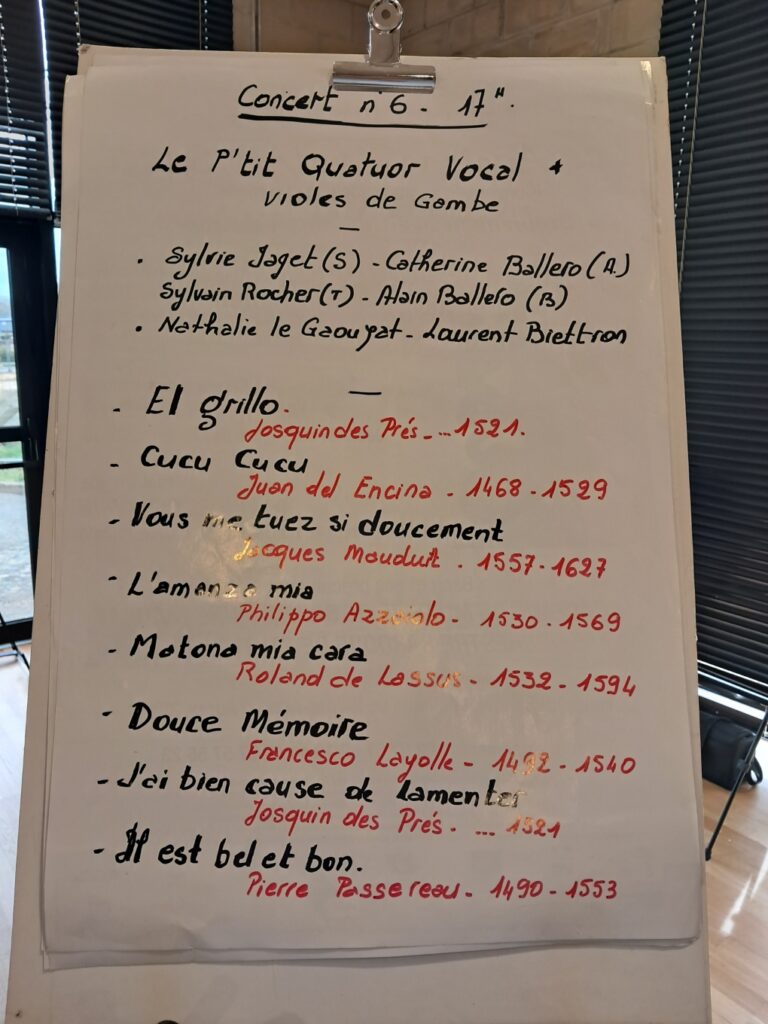 Concert n°6 - 17H.
Le P'tit Quatuor Vocal +
Violes de Gambe
—
. Sylvie Jaget (S) - Catherine Ballero (A)
Sylvain Rocher (T) - Alain Ballero (B)
. Nathalie le Gaouyat - Laurent Biettron
—
- El grillo.
Josquin des Prés - ... 1521.
- Cucu Cucu
Juan del Encina . 1468 - 1529
- Vous me tuez si doucement
Jacques Mauduit . 1557 - 1627
- L'amanza mia
Philippo Azzaiolo - 1530 - 1569
- Matona mia cara
Roland de Lassus - 1532 - 1594
- Douce Mémoire
Francesco Layolle - 1492 - 1540
- J'ai bien cause de lamenter
Josquin des Prés . ... 1521
- Il est bel et bon.
Pierre Passereau - 1490 - 1553